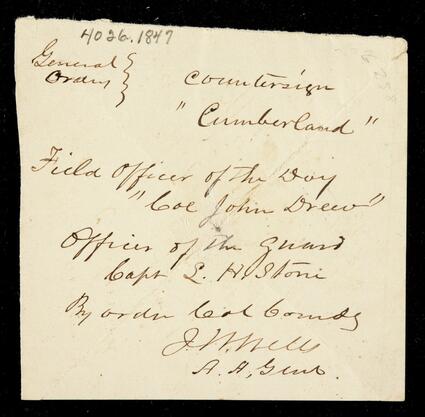 4026.1847
General
Orders
Countersign
"Cumberland"
Field Officer of the Day
"Col John Drew"
Officer of the Guard
Capt L. H. Stone
By order Col Comdg
J. W. Wells
A. A. Genl.